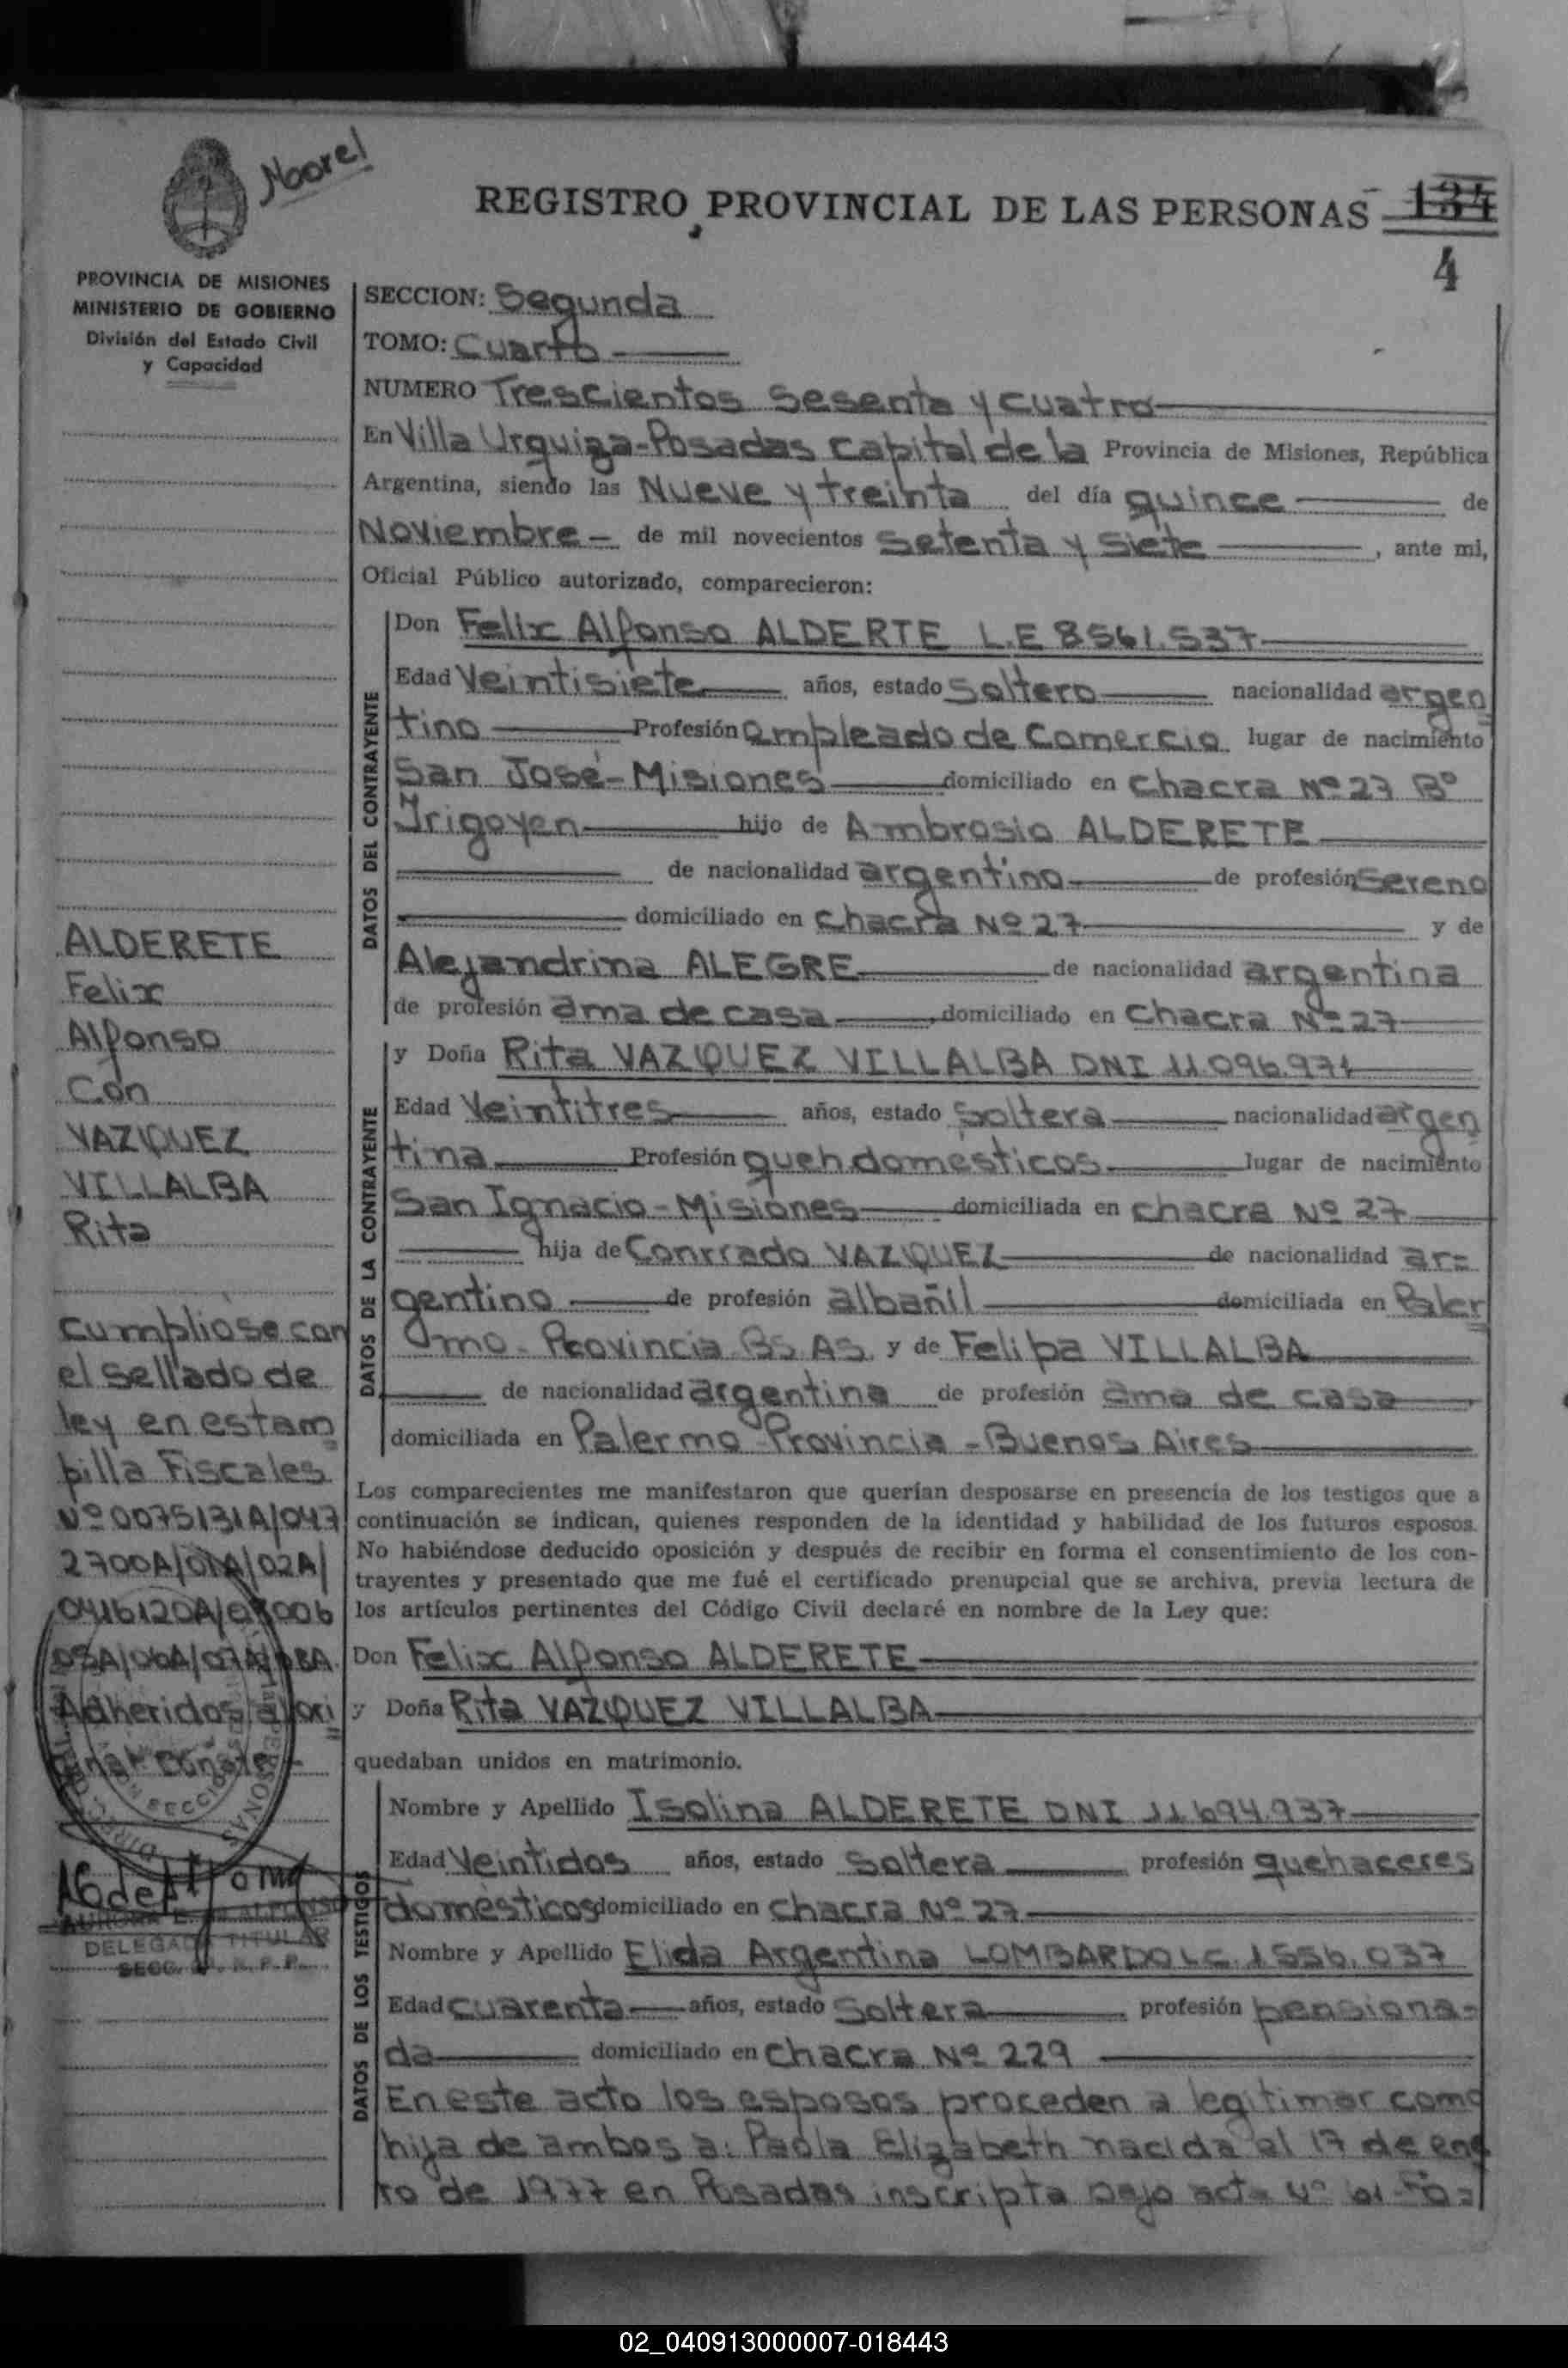 Noorel
REGISTRO PROVINCIAL DE LAS PERSONAS
134
4
PROVINCIA DE MISIONES
MINISTERIO DE GOBIERNO
División del Estado Civil
y Capacidad
SECCION: Segunda
TOMO: Cuarto
NUMERO Trescientos Sesenta y cuatro
En Villa Urquiza-Posadas Capital de la Provincia de Misiones, República
Argentina, siendo las Nueve y treinta del día quince de
Noviembre - de mil novecientos Setenta y Siete, ante mi,
Oficial Público autorizado, comparecieron:
DATOS DEL CONTRAYENTE
Don Felix Alfonso ALDERTE L.E 8561.537
Edad Veintisiete años, estado Soltero nacionalidad argen
tino Profesión empleado de Comercio lugar de nacimiento
San José-Misiones domiciliado en Chacra Nº 27 Bº
Irigoyen hijo de Ambrosio ALDERETE
de nacionalidad argentino de profesión Sereno
domiciliado en Chacra Nº 27 y de
Alejandrina ALEGRE de nacionalidad argentina
de profesión ama de casa, domiciliado en Chacra Nº 27
DATOS DE LA CONTRAYENTE
y Doña Rita VAZQUEZ VILLALBA DNI 11.096.971
Edad Veintitres años, estado Soltera nacionalidad argen
tina Profesión quehdomésticos lugar de nacimiento
San Ignacio-Misiones domiciliada en chacra Nº 27
hija de Conrrado VAZQUEZ de nacionalidad ar=
gentino de profesión albañil domiciliada en Paler
mo-Provincia BS AS y de Felipa VILLALBA
de nacionalidad argentina de profesión ama de casa,
domiciliada en Palermo-Provincia-Buenos Aires
Los comparecientes me manifestaron que querían desposarse en presencia de los testigos que a
continuación se indican, quienes responden de la identidad y habilidad de los futuros esposos.
No habiéndose deducido oposición y después de recibir en forma el consentimiento de los con-
trayentes y presentado que me fué el certificado prenupcial que se archiva, previa lectura de
los artículos pertinentes del Código Civil declaré en nombre de la Ley que:
Don Felix Alfonso ALDERETE
y Doña Rita VAZQUEZ VILLALBA
quedaban unidos en matrimonio.
DATOS DE LOS TESTIGOS
Nombre y Apellido Isolina ALDERETE DNI 11.694.937
Edad Veintidos años, estado Soltera profesión quehaceres
domésticos domiciliado en chacra Nº 27
Nombre y Apellido Elida Argentina LOMBARDO LC. 1556.037
Edad cuarenta años, estado Soltera profesión pensiona-
da domiciliado en Chacra Nº 229
En este acto los esposos proceden a legitimar como
hija de ambos a: Paola Elizabeth nacida el 17 de ene
ro de 1977 en Posadas inscripta bajo acta Nº
ALDERETE
Felix
Alfonso
Con
VAZQUEZ
VILLALBA
Rita
Cumpliose con
el sellado de
ley en estam
pilla Fiscales
Nº 0075131A/047
2700A/01A/02A/
05A/06A/07A/08A.
Adheridos al ori
DELEGADA TITULAR
SECC. R. P. P.
02_040913000007-018443